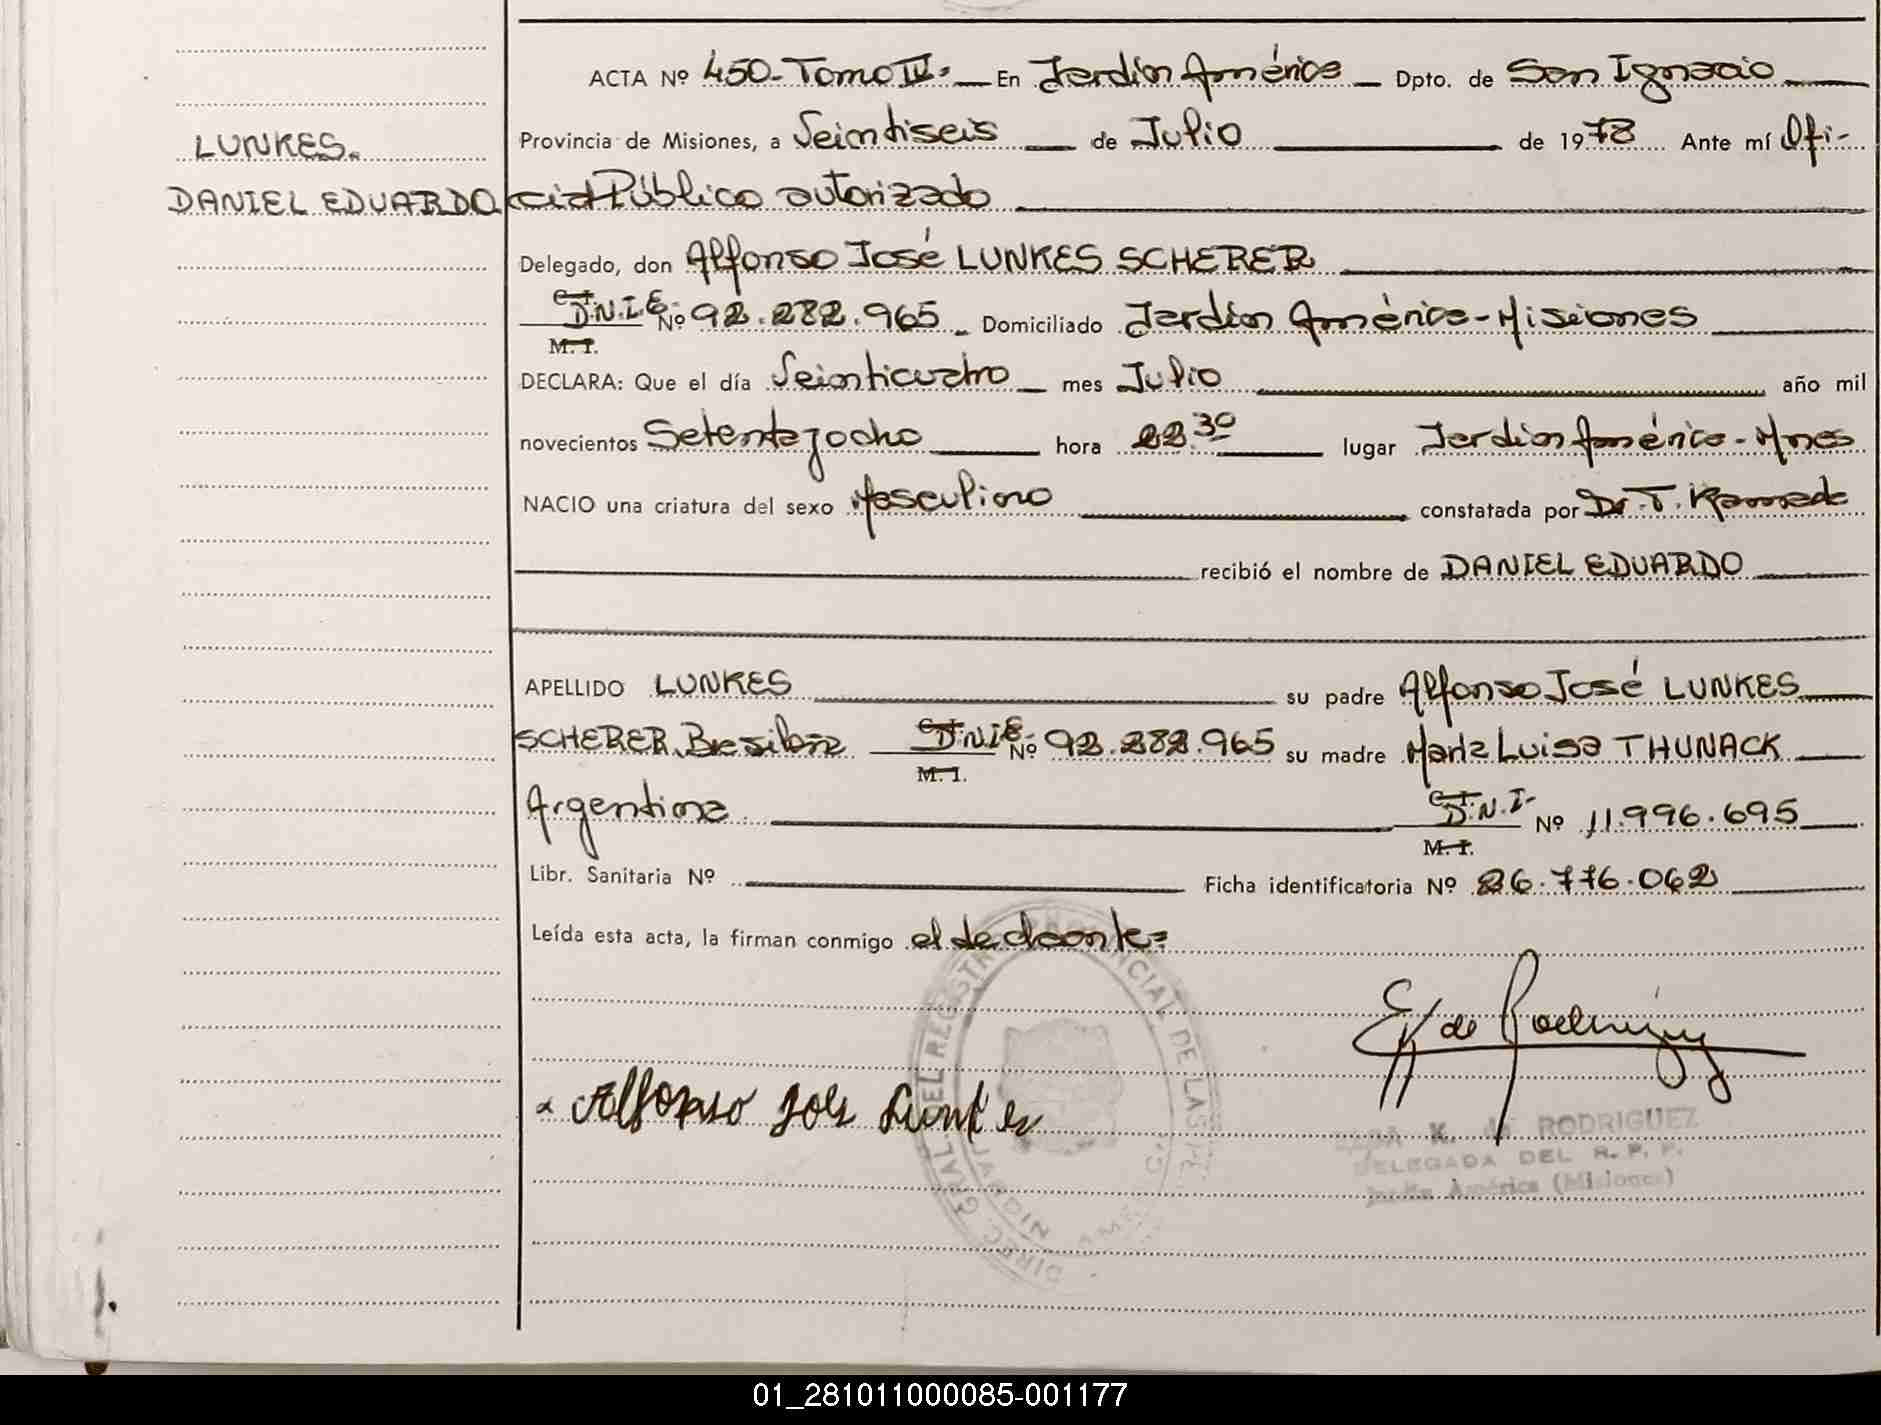 ACTA Nº 450-Tomo IV. En Jardín América Dpto. de San Ignacio
LUNKES. Provincia de Misiones, a Veintiseis de Julio de 1978 Ante mí Ofi-
DANIEL EDUARDO cial Público autorizado
Delegado, don Alfonso José LUNKES SCHERER
C.I. D.N.I.E. M.I. Nº 92.282.965 Domiciliado Jardín América-Misiones
DECLARA: Que el día Veinticuatro mes Julio año mil
novecientos Setentayocho hora 22.30 lugar Jardín América-Mnes
NACIO una criatura del sexo Masculino constatada por Dr. T.
recibió el nombre de DANIEL EDUARDO
APELLIDO LUNKES su padre Alfonso José LUNKES
SCHERER, Brasileña C.I. D.N.I.E. M.I. Nº 92.282.965 su madre María Luisa THUNACK
Argentina C.I. D.N.I. M.I. Nº 11.996.695
Libr. Sanitaria Nº Ficha identificatoria Nº 26.776.062
Leída esta acta, la firman conmigo el declarante=
Alfonso José Lunkes
K. de RODRIGUEZ
DELEGADA DEL R. P. P.
Jardín América (Misiones)
DIREC. GRAL. DEL REGISTRO PROVINCIAL DE LAS
01_281011000085-001177